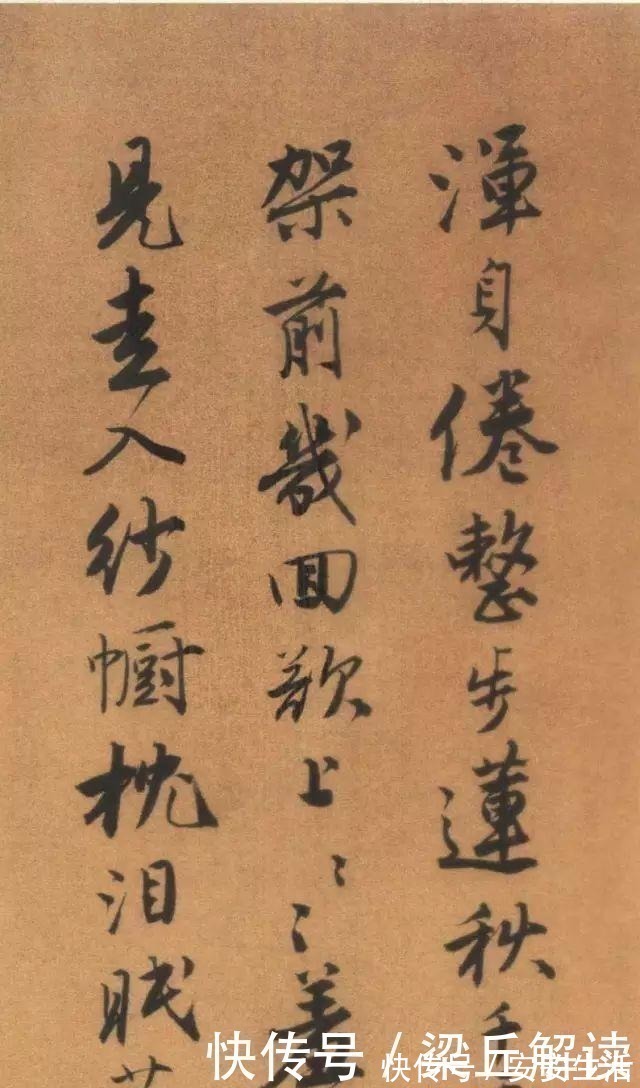 渾身倦整步蓮秋千
架前幾回欲上〻〻羞
見走入紗幮枕泪眠
快传号 / 梁丘解读